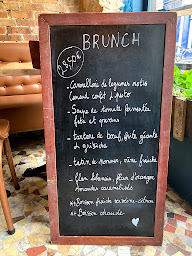 BRUNCH
23,50€
- Cannellonis de légumes rôtis
fenouil confit & pesto
- Soupe de tomate fermentée
feta et graines
- tartare de bœuf, frite géante
& gribiche
- tatin de pommes, crème fraîche
- flan libanais, fleur d'oranger
amandes caramélisés
+ Boisson fraîche maison-citron
+ Boisson chaude